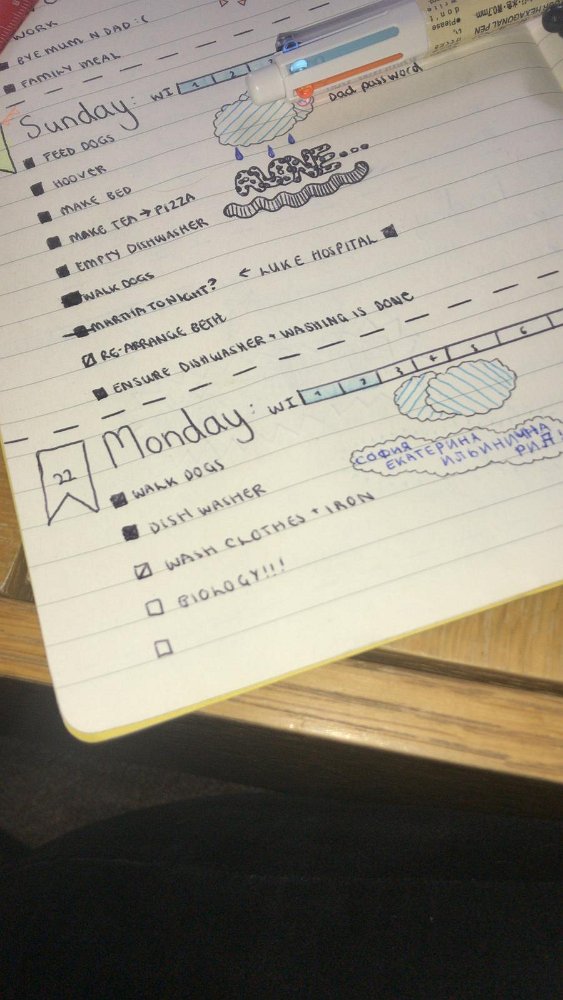 WORK
BYE MUM N DAD :(
FAMILY MEAL
Sunday: WI 1 2 3
FEED DOGS
HOOVER
MAKE BED
MAKE TEA → PIZZA
EMPTY DISHWASHER
WALK DOGS
MARTHA TONIGHT? ← LUKE HOSPITAL
RE-ARRANGE BETH
ENSURE DISHWASHER + WASHING IS DONE
Dad password
ALONE...
22
Monday: WI 1 2 3 4 5 6
WALK DOGS
DISH WASHER
WASH CLOTHES + IRON
BIOLOGY!!!
СОФИЯ
ЕКАТЕРИНА
ИЛЬИНИЧНА
РИД
HEXAGONAL PEN
Please
don't
0.7mm